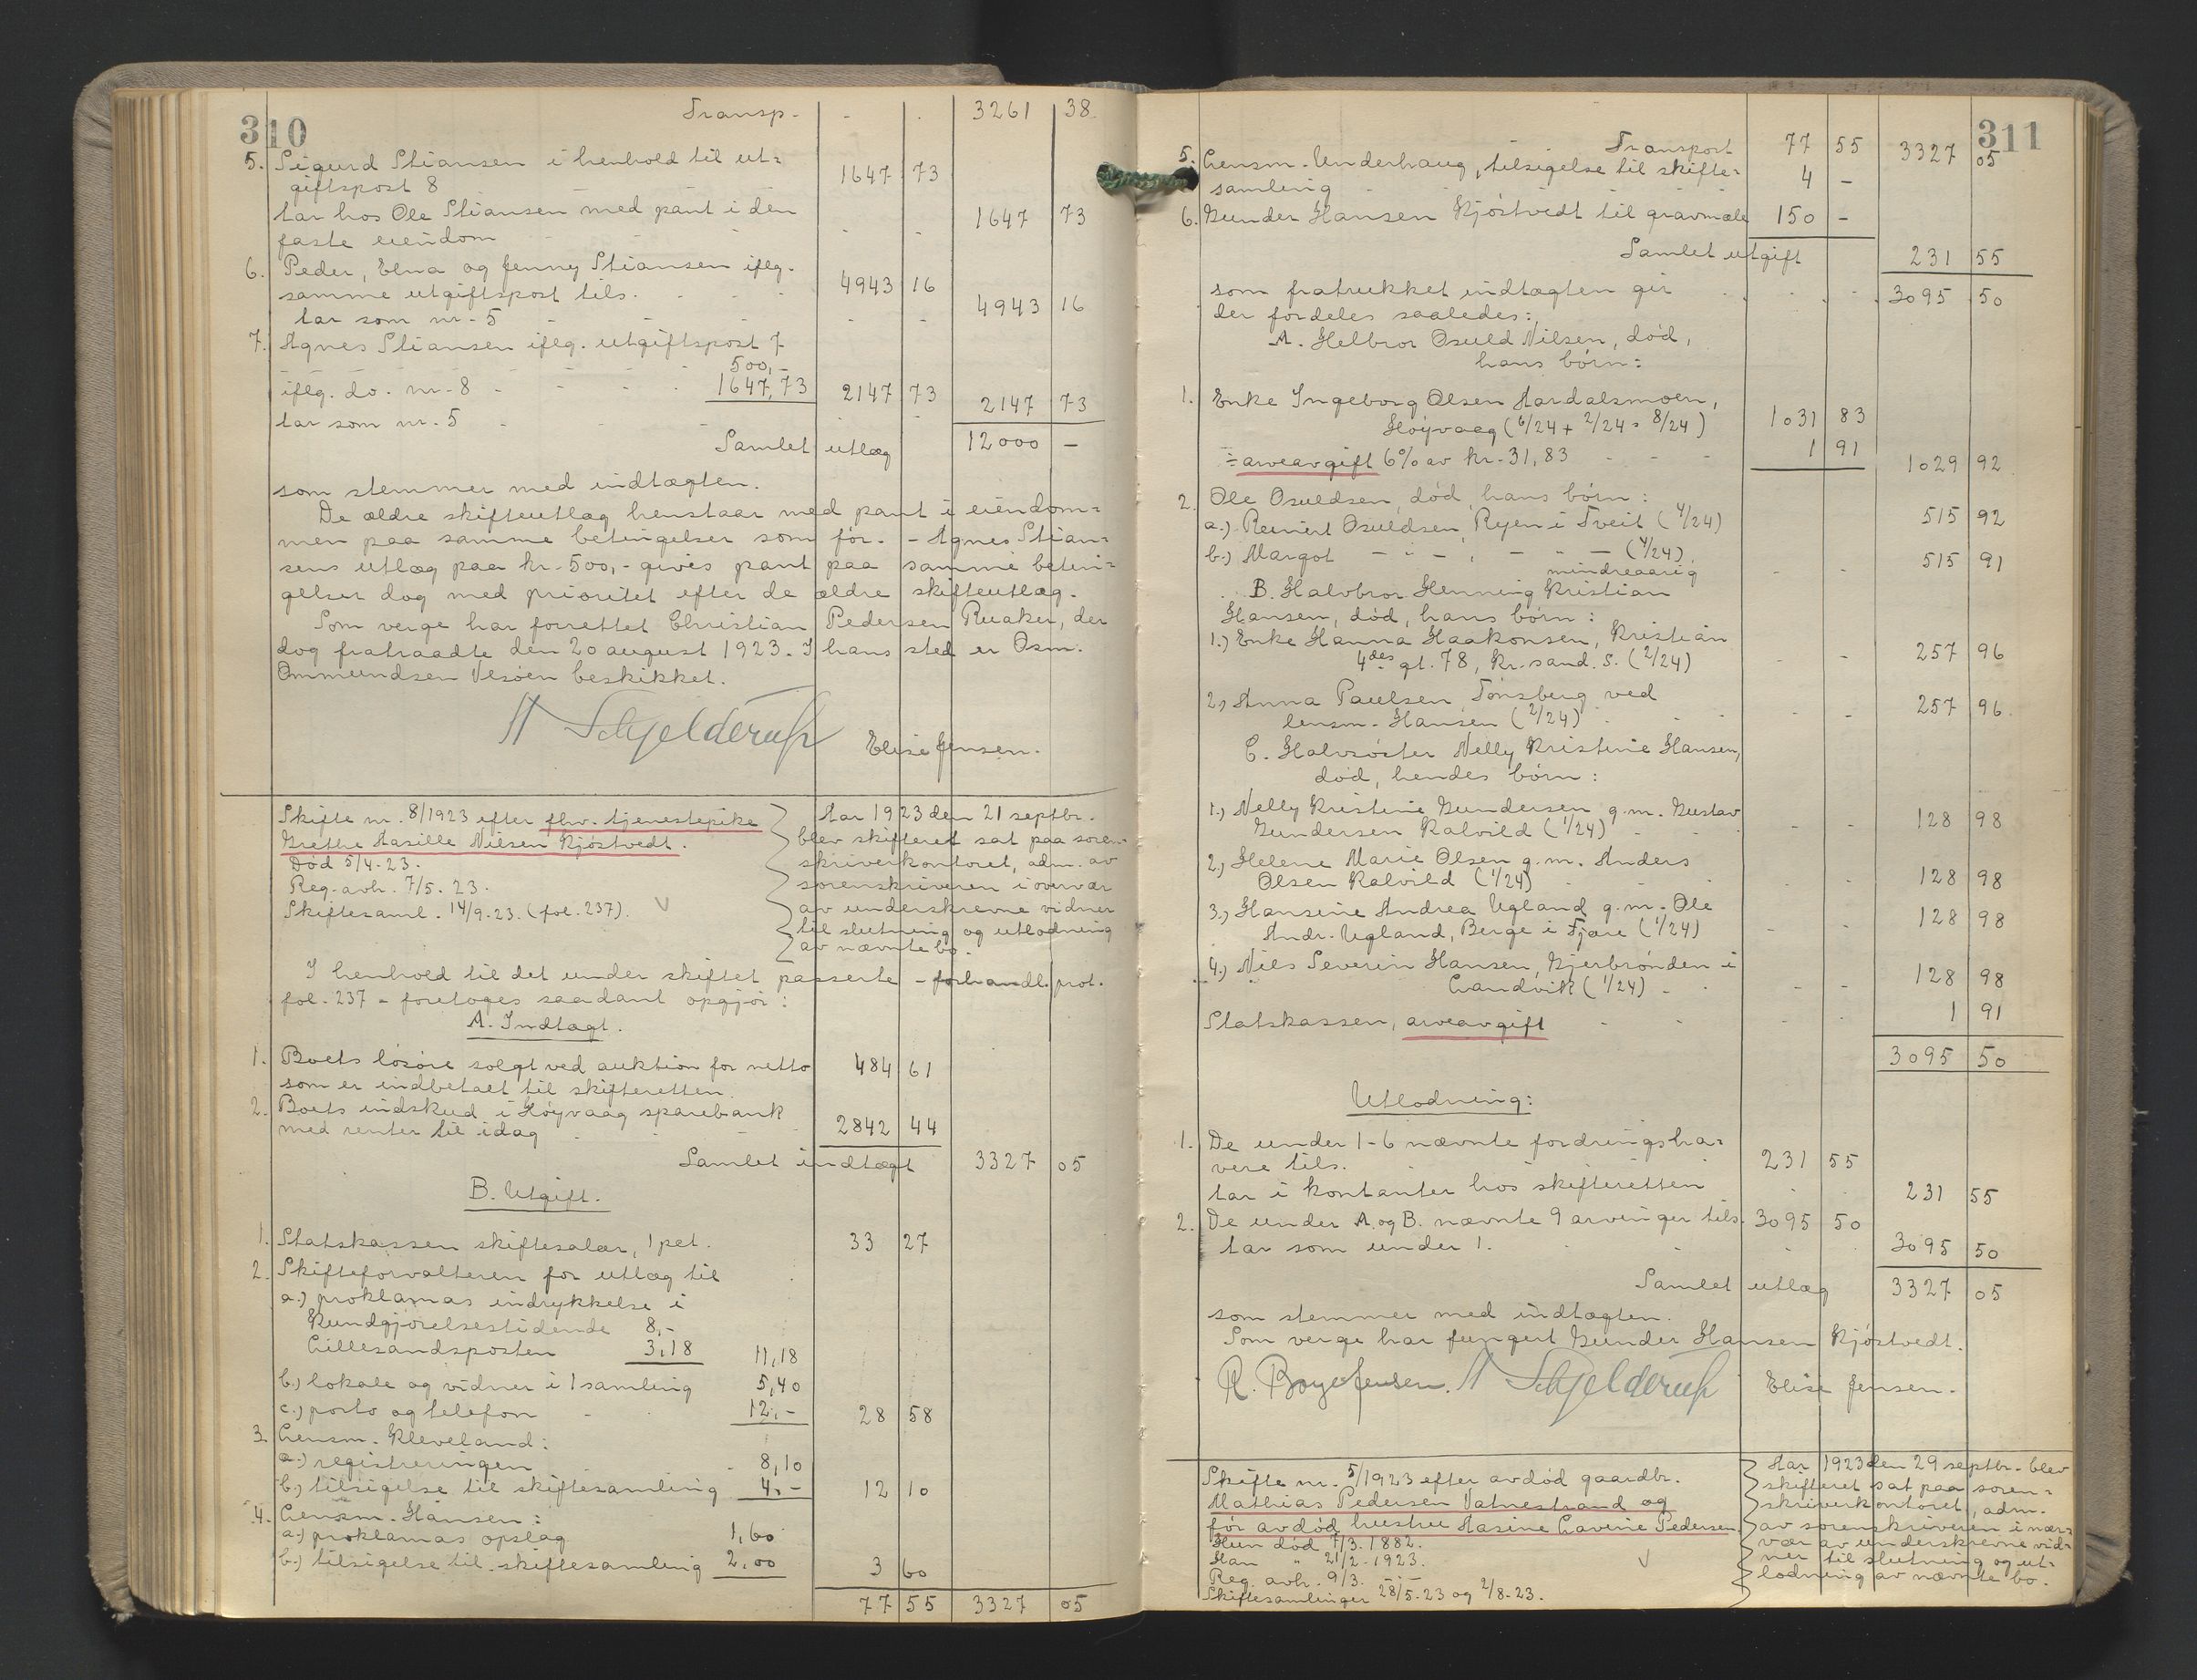 310
Transp. - . 3261 38.
5. Sigurd Stiansen i henhold til ut=
giftspost 8 1647 73
tar hos Ole Stiansen med pant i den
faste eiendom - - 1647 73
6. Peder, Elna og Jenny Stiansen iflg.
samme utgiftspost tils. 4943 16
tar som nr. 5 - - 4943 16
7. Agnes Stiansen iflg. utgiftspost 7
500,-
iflg. do. nr. 8 - 1647,73 2147 73
tar som nr. 5 2147 73
Samlet utlæg 12000 -
som stemmer med indtægten.
De ældre skifteutlæg henstaar med pant i eiendom=
men paa samme betingelser som før. - Agnes Stian=
sens utlæg paa kr. 500,- gives pant paa samme betin=
gelser dog med prioritet efter de ældre skifteutlæg.
Som verge har forrettet Christian Pedersen Ruaker, der
dog fratraadte den 20 august 1923. I hans sted er Osm.
Ommundsen Vesøen beskikket.
A Schjelderup Elise Jensen.
Skifte nr. 8/1923 efter fhv. tjenestepike
Grethe Tasille Nilsen Kjøstvedt.
Død 5/4-23.
Reg. avh. 7/5. 23.
Skiftesaml. 14/9-23. (fol. 237). V
Aar 1923 den 21 septbr.
blev skifteret sat paa soren=
skriverkontoret, adm. av
sorenskriveren i overvær
av underskrevne vidner
til slutning og utlodning
av nævnte bo.
I henhold til det under skiftet passerte - forhandl. prot.
fol. 237 - foretoges saadant opgjør:
A. Indtægt.
1. Boets løsøre solgt ved auktion for netto 484 61
som er indbetalt til skifteretten.
2. Boets indskud i Høyvaag sparebank
med renter til idag 2842 44
Samlet indtægt 3327 05
B. Utgift.
1. Statskassen skiftesalær, 1 pct. 33 27
2. Skifteforvalteren for utlæg til
a.) proklamas indrykkelse i
Kundgjørelsestidende 8,-
Lillesandsposten 3,18 11,18
b.) lokale og vidner i 1 samling 5,40
c.) porto og telefon - 12,- 28 58
3. Lensm. Kleveland:
a.) registreringen 8,10
b.) tilsigelse til skiftesamling 4,- 12 10
4. Lensm. Hansen:
a.) proklamas opslag 1,60
b.) tilsigelse til skiftesamling 2,00 3 60
77 55 3327 05
311
Transport 77 55 3327 05
5. Lensm. Underhaug, tilsigelse til skifte=
samling 4 -
6. Gunder Hansen Kjøstvedt til gravmæle 150 -
Samlet utgift 231 55
som fratrukket indtægten gir 3095 50
der fordeles saaledes:
A. Helbror Osuld Nilsen, død,
hans børn:
1. Enke Ingeborg Olsen Aardalsmoen,
Høyvaag (6/24 + 2/24 = 8/24) 1031 83
÷ arveavgift 6% av kr. 31,83 - - - 1 91 1029 92
2. Ole Osuldsen, død, hans børn:
a.) Reinert Osuldsen, Ryen i Tveit (4/24) 515 92
b.) Margot - " - , - " - (4/24)
mindreaarig - - 515 91
B. Halvbror Henning Kristian
Hansen, død, hans børn:
1.) Enke Hanna Haakonsen, Kristian
4des gt. 78, Kr.sand. S. (2/24) - - 257 96
2.) Anna Paulsen, Tønsberg ved
lensm. Hansen (2/24) - - 257 96.
C. Halvsøster Nelly Kristine Hansen,
død, hendes børn:
1.) Nelly Kristine Gundersen g.m. Gustav
Gundersen Kalvild (1/24) - - 128 98
2.) Helene Marie Olsen g.m. Anders
Olsen Kalvild (1/24) - - 128 98
3.) Hansine Andrea Ugland g.m. Ole
Andr. Ugland, Berge i Fjære (1/24) - - 128 98
4.) Nils Severin Hansen, Bjerbrønden i
Landvik (1/24) - - - 128 98
Statskassen, arveavgift - - - 1 91
3095 50
Utlodning:
1. De under 1-6 nævnte fordringsha=
vere tils. 231 55
tar i kontanter hos skifteretten 231 55
2. De under A. og B. nævnte 9 arvinger tils. 3095 50
tar som under 1. 3095 50
Samlet utlæg 3327 05
som stemmer med indtægten.
Som verge har fungert Gunder Hansen Kjøstvedt.
R. Boye Jensen. A Schjelderup Elise Jensen.
Skifte nr. 5/1923 efter avdød gaardbr.
Mathias Pedersen Vatnestrand og
før avdød hustru Hasine Lavine Pedersen.
Hun død 7/3. 1882.
Han " 21/2-1923.
Reg. avh. 9/3. -"-
Skiftesamlinger 28/5-23 og 2/8-23.
V
Aar 1923 den 29 septbr. blev
skifteret sat paa soren=
skriverkontoret, adm.
av sorenskriveren i nær=
vær av underskrevne vid=
ner til slutning og ut=
lodning av nævnte bo.